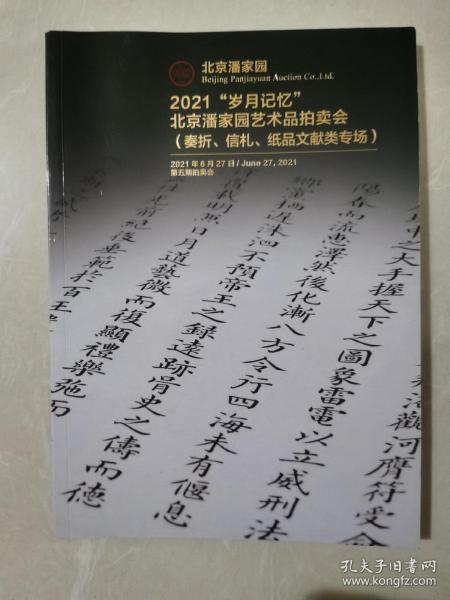 北京潘家园
Beijing Panjiayuan Auction Co.,Ltd.
2021“岁月记忆”
北京潘家园艺术品拍卖会
（奏折、信札、纸品文献类专场）
2021年6月27日/June 27, 2021
第五期拍卖会
河膺符受命
之大手握天下之圖象雷電以立威刑法
陽春而流惠澤然後化漸八方令行四海未有偃息
洙泗不預帝王之錄遠跡胥史之儔而德
代明照日月道藝微而復顯禮樂弛而
孔夫子旧书网
www.kongfz.com